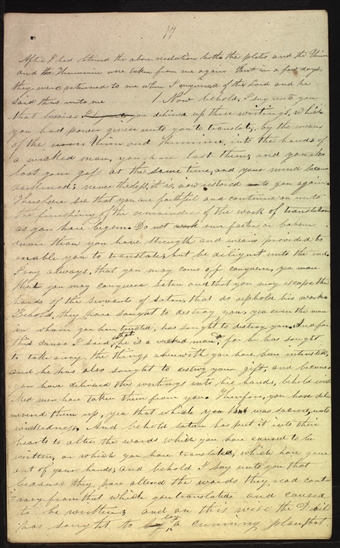 17
After I had obtained the above revelation both the plates and the Urim
and the Thummim were taken from me again But in a few days
they were returned to me when I enquired of the Lord and he
said thus unto me Now behold, I say unto you
that because you delivered up those writings, which
you had power given unto you to translate, by the means
of the Urim and Thummim, into the hands of
a wicked man, you have lost them, and you also
lost your gift at the same time, and your mind became
darkened; nevertheless, it is now restored unto you again
Therefore see that you are faithful and continue on unto
the finishing of the remainder of the work of translation
as you have begun. Do not run faster or labour
more than you have strength and means provided to
enable you to translate; but be diligent unto the end.
Pray always, that you may come off conqueror, yea
that you may conquer Satan and that you may escape the
hands of the servants of satan, that do uphold his work.
Behold, they have sought to destroy you; yea, even the man
in whom you have trusted, has sought to destroy you. And for
this cause I said, he is a wicked man, for he has sought
to take away the things wherewith you have been intrusted;
and he has also sought to destroy your gift, and because
you have delivered the writings into his hands, behold
men have taken them from you. Therefore, you have
them up, yea, that which was sacred, unto
wickedness. And behold satan has put it into their
hearts to alter the words which you have caused to be
written, or which you have translated, which have gone
out of your hands; and behold I say unto you that
because they have altered the words, they read
from that which you translated and caused
to be written; and on this wise the Devil
has sought to lay a cunning plan, that